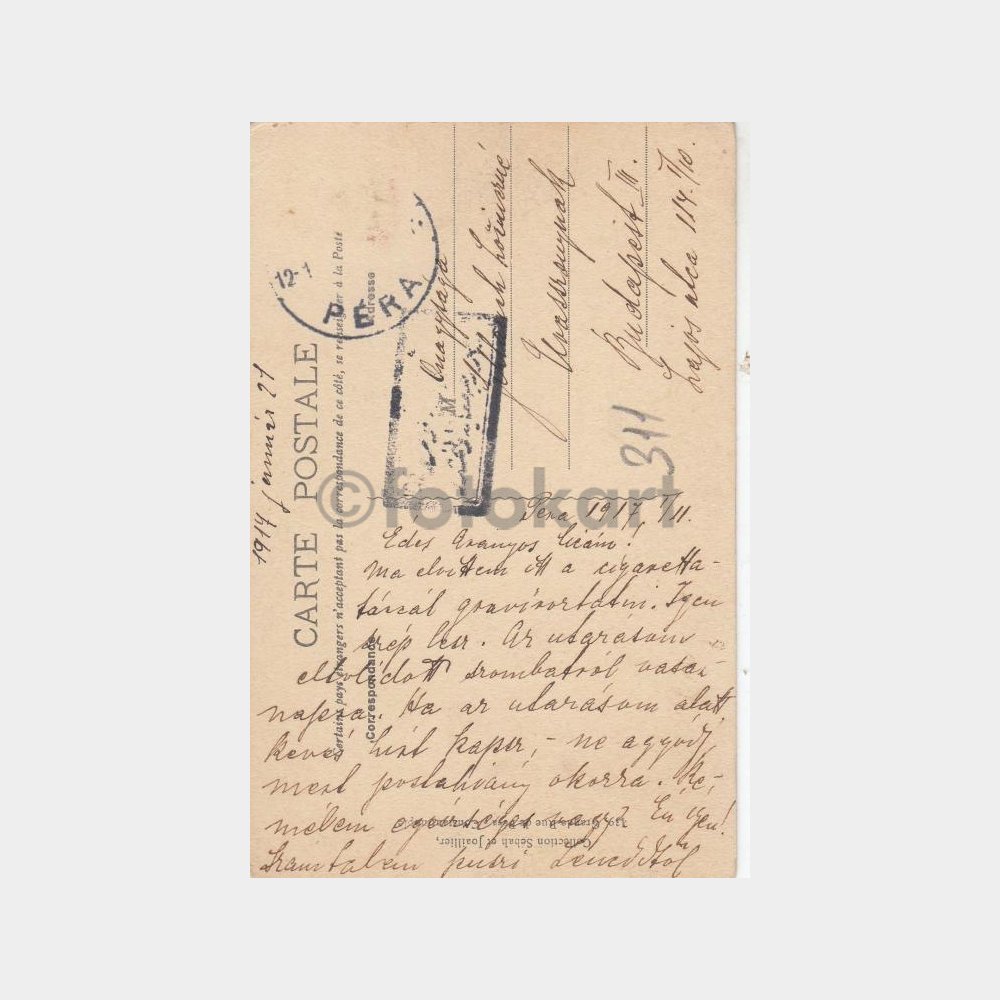 CARTE POSTALE
Certains pays étrangers n'acceptant pas la correspondance de ce côté, se renseigner à la Poste
Correspondance
Adresse
1917 január 21
12-1
PÉRA
Őnagysága
Úrasszonynak
Budapest III.
Lajos utca 114. I/10.
311
©fotokart
Péra 1917. I/11.
Édes Aranyos Cicám!
Ma elvittem itt a cigaretta-
tárcát gravíroztatni. Igen
szép lesz. Az utazásom
eltolódott szombatról vasár-
napra. Ha az utazásom alatt
kevés hírt kapsz, - ne aggódj,
mert postahiány okozza. Re-
mélem egészséges vagy? Én igen!
Számtalan puszi
Collection Sebah et Joaillier,
439, Grande Rue de Péra, Constantinople